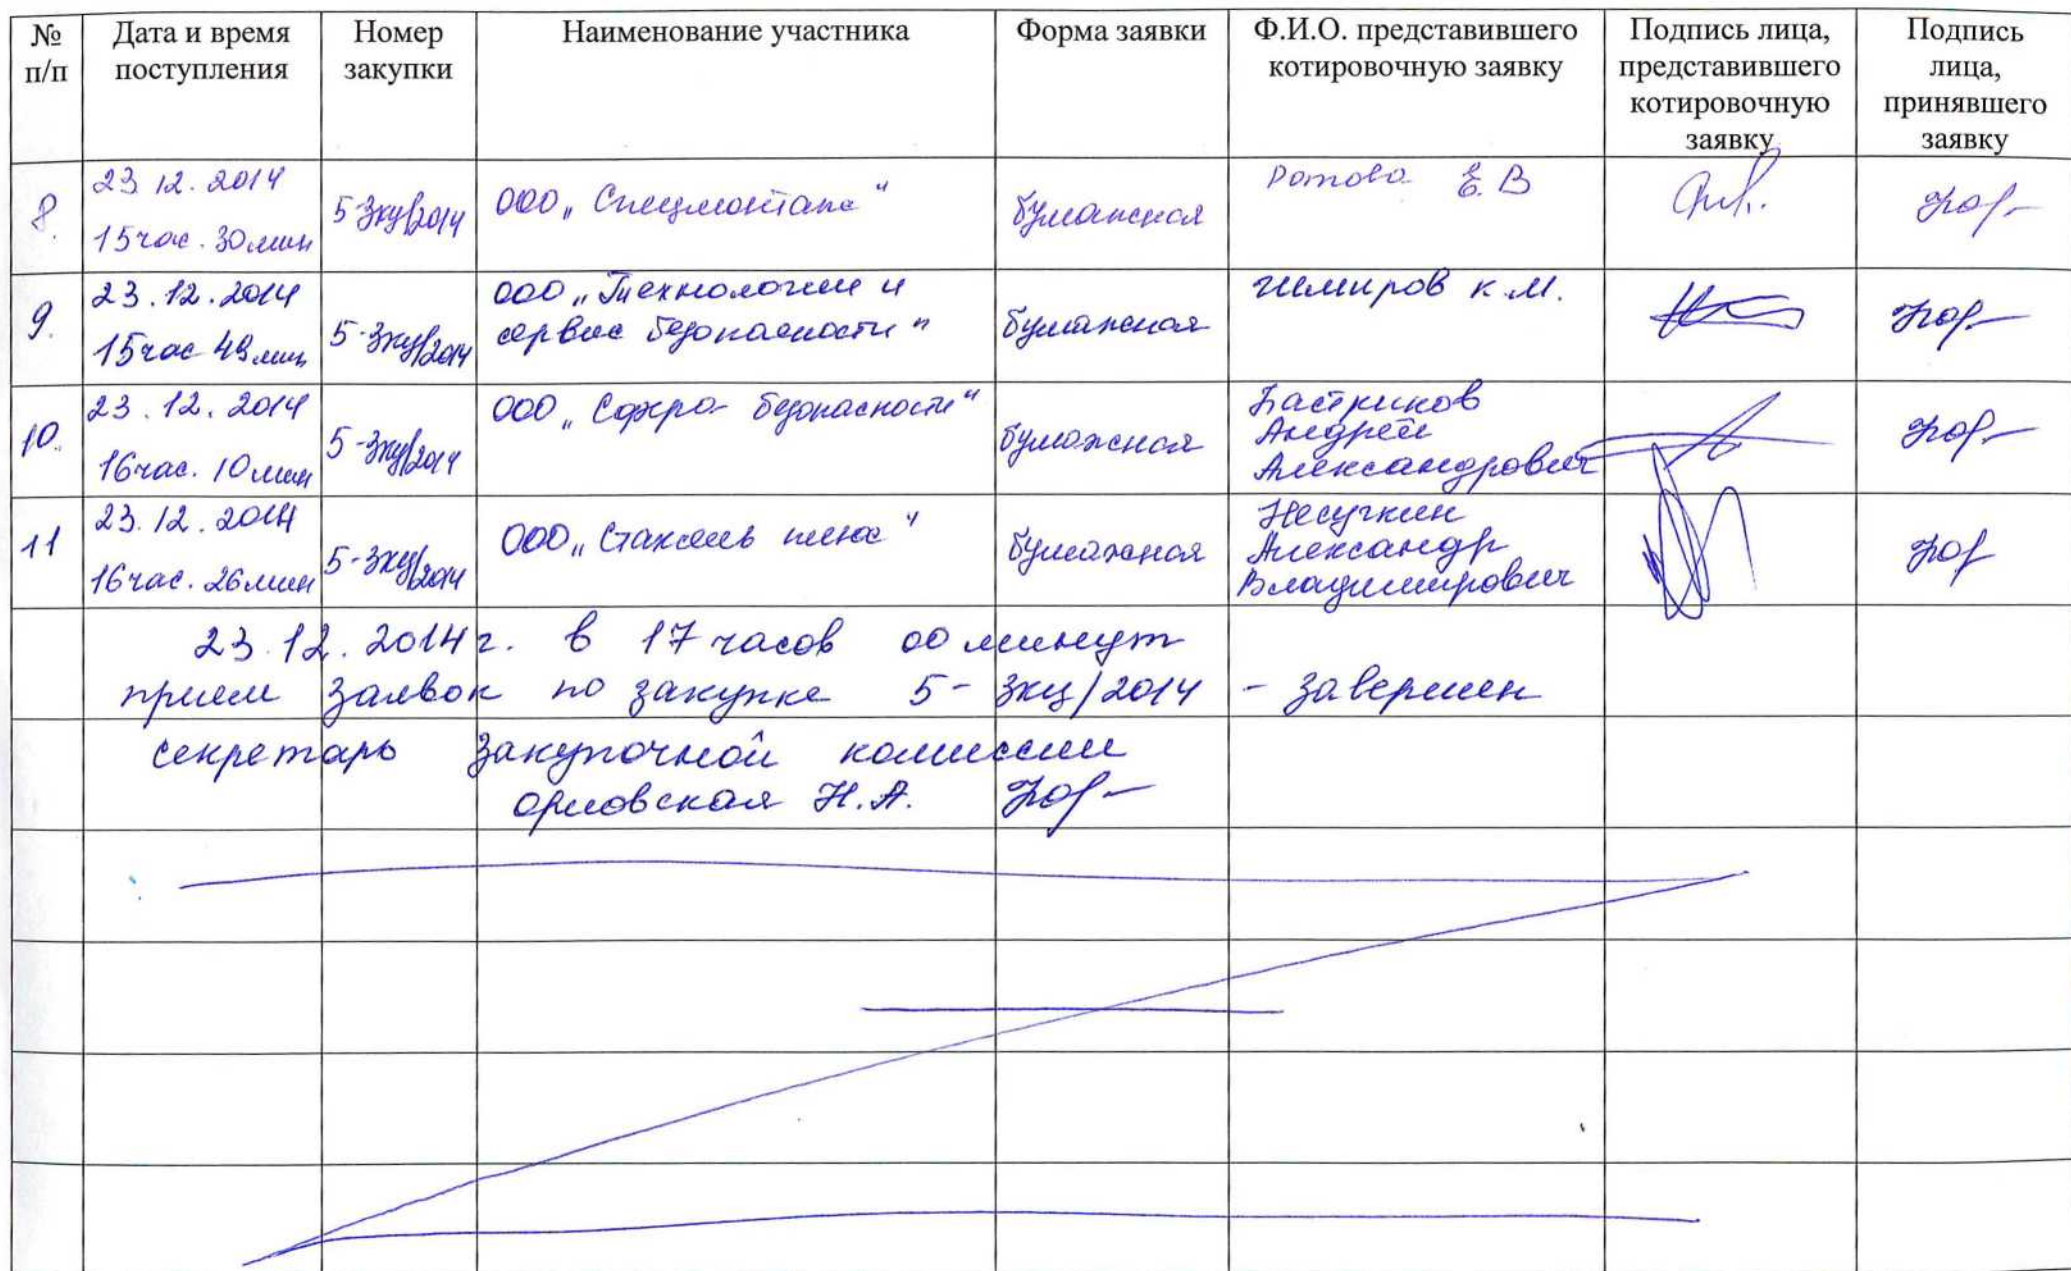 № п/п
Дата и время поступления
Номер закупки
Наименование участника
Форма заявки
Ф.И.О. представившего котировочную заявку
Подпись лица, представившего котировочную заявку
Подпись лица, принявшего заявку
8.
23.12.2014
15 час. 30 мин
5-зкц/2014
ООО „Спецмонтаж"
бумажная
Ротова Е.В
9.
23.12.2014
15 час 49 мин
5-зкц/2014
ООО „Технологии и
сервис безопасности"
бумажная
К.М.
10.
23.12.2014
16 час. 10 мин
5-зкц/2014
ООО „ безопасности"
бумажная
Бастриков
Андрей
Александрович
11
23.12.2014
16 час. 26 мин
5-зкц/2014
ООО „Стаксель плюс"
бумажная
Александр
Владимирович
23.12.2014 г. в 17 часов 00 минут
прием заявок по закупке 5-зкц/2014 - завершен
секретарь закупочной комиссии
Орловская Н.А.